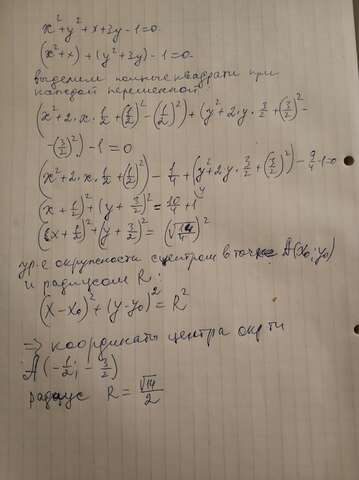 x²+y²+x+3y-1=0.
(x²+x)+(y²+3y)-1=0.
выделим полные квадраты при
каждой переменной
(x²+2·x·1/2+(1/2)²-(1/2)²)+(y²+2·y·3/2+(3/2)²-
-(3/2)²)-1=0
(x²+2·x·1/2+(1/2)²)-1/4+(y²+2·y·3/2+(3/2)²)-9/4-1=0
(x+1/2)²+(y+3/2)²=10/4+1
(x+1/2)²+(y+3/2)²=(√14/4)²
ур-е окружности с центром в точке A(x₀; y₀)
и радиусом R:
(x-x₀)²+(y-y₀)²=R²
⇒ координаты центра окр-ти
A(-1/2; -3/2)
радиус R=√14/2